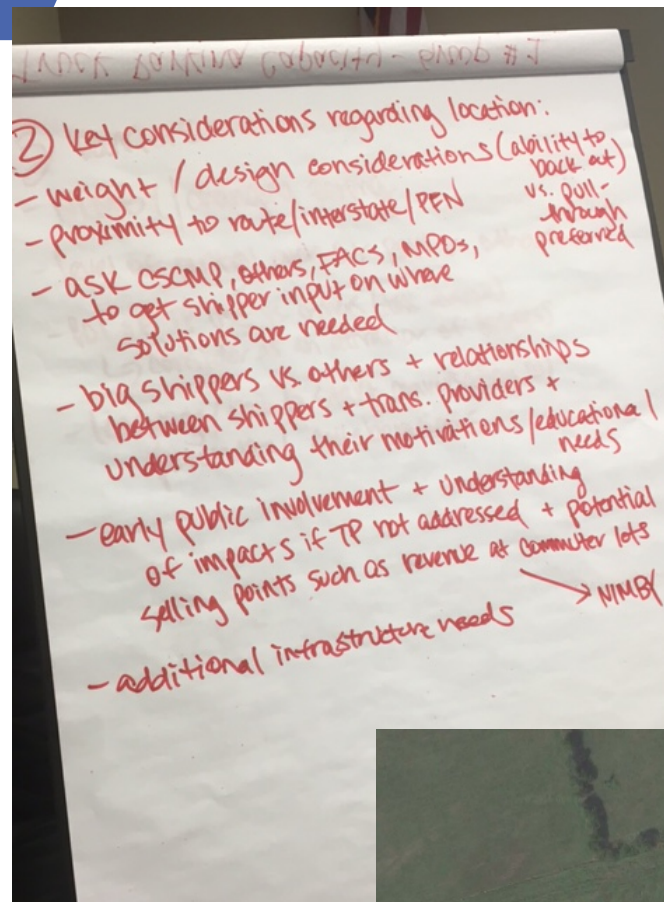 Truck Parking Capacity - Group #
② Key considerations regarding location:
- weight / design considerations (ability to
back out)
vs. pull-
through
preferred
- proximity to route/interstate/PFN
- ask CSCMP, others, FACs, MPOs,
to get shipper input on where
solutions are needed
- big shippers vs. others + relationships
between shippers + trans. providers +
understanding their motivations/educational
needs
- early public involvement + understanding
of impacts if TP not addressed + potential
selling points such as revenue at commuter lots
→ NIMBY
- additional infrastructure needs